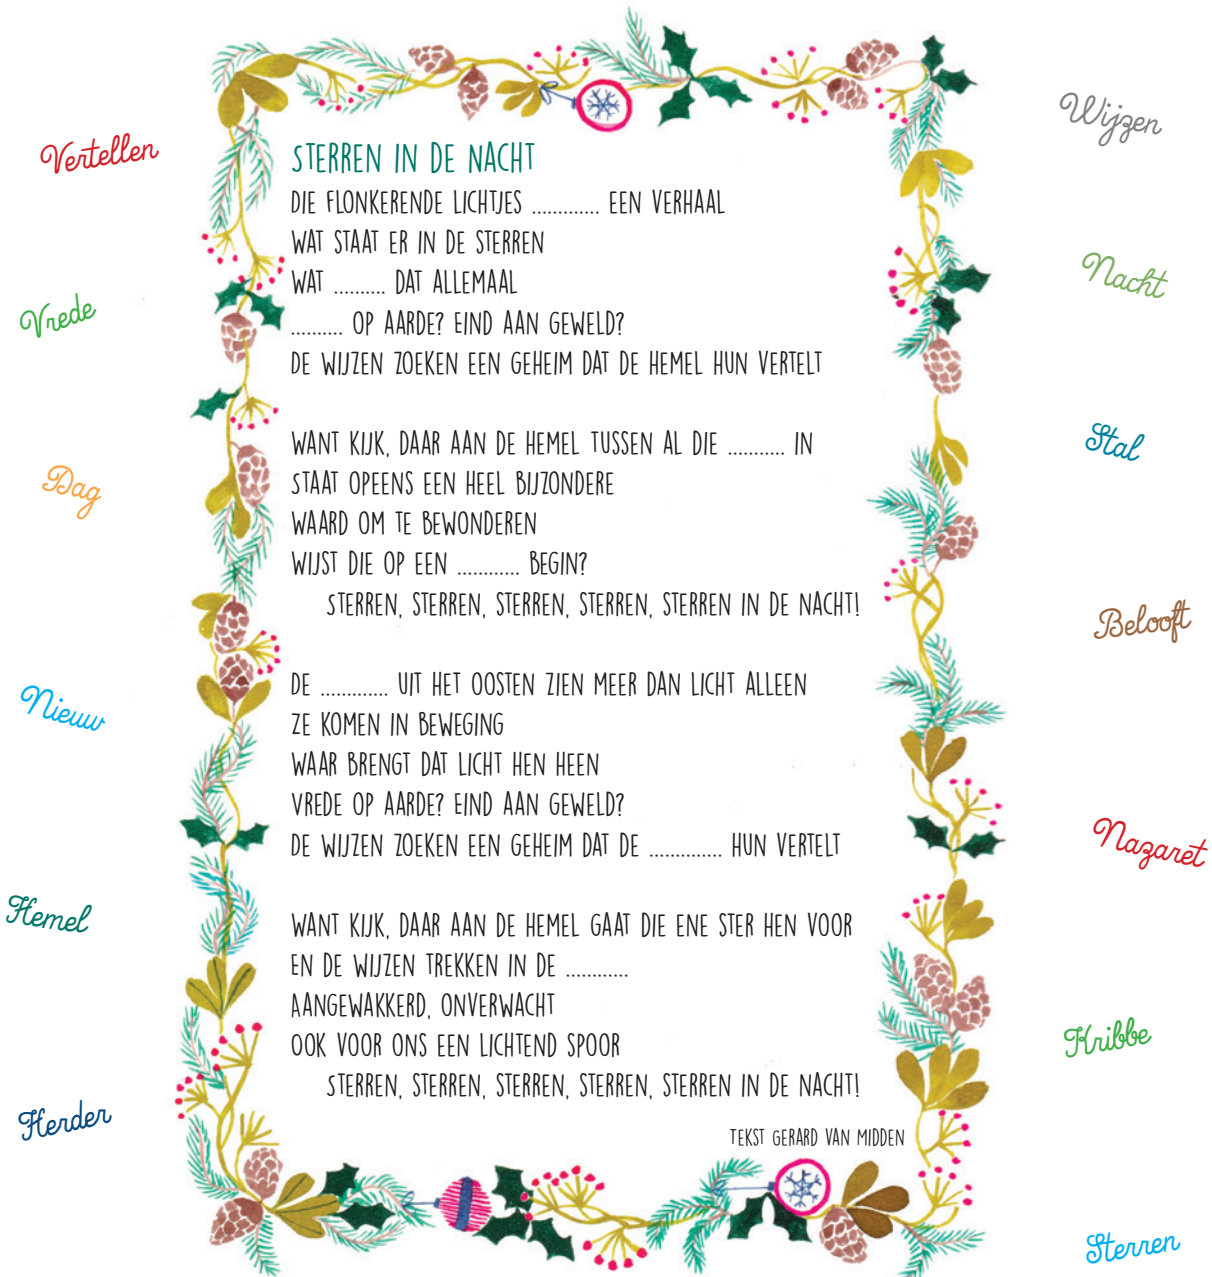 Vertellen
Vrede
Dag
Nieuw
Hemel
Herder
STERREN IN DE NACHT
DIE FLONKERENDE LICHTJES ............. EEN VERHAAL
WAT STAAT ER IN DE STERREN
WAT .......... DAT ALLEMAAL
.......... OP AARDE? EIND AAN GEWELD?
DE WIJZEN ZOEKEN EEN GEHEIM DAT DE HEMEL HUN VERTELT
WANT KIJK, DAAR AAN DE HEMEL TUSSEN AL DIE ........... IN
STAAT OPEENS EEN HEEL BIJZONDERE
WAARD OM TE BEWONDEREN
WIJST DIE OP EEN ............ BEGIN?
STERREN, STERREN, STERREN, STERREN, STERREN IN DE NACHT!
DE ............. UIT HET OOSTEN ZIEN MEER DAN LICHT ALLEEN
ZE KOMEN IN BEWEGING
WAAR BRENGT DAT LICHT HEN HEEN
VREDE OP AARDE? EIND AAN GEWELD?
DE WIJZEN ZOEKEN EEN GEHEIM DAT DE .............. HUN VERTELT
WANT KIJK, DAAR AAN DE HEMEL GAAT DIE ENE STER HEN VOOR
EN DE WIJZEN TREKKEN IN DE ............
AANGEWAKKERD, ONVERWACHT
OOK VOOR ONS EEN LICHTEND SPOOR
STERREN, STERREN, STERREN, STERREN, STERREN IN DE NACHT!
TEKST GERARD VAN MIDDEN
Wijzen
Nacht
Stal
Belooft
Nazaret
Kribbe
Sterren